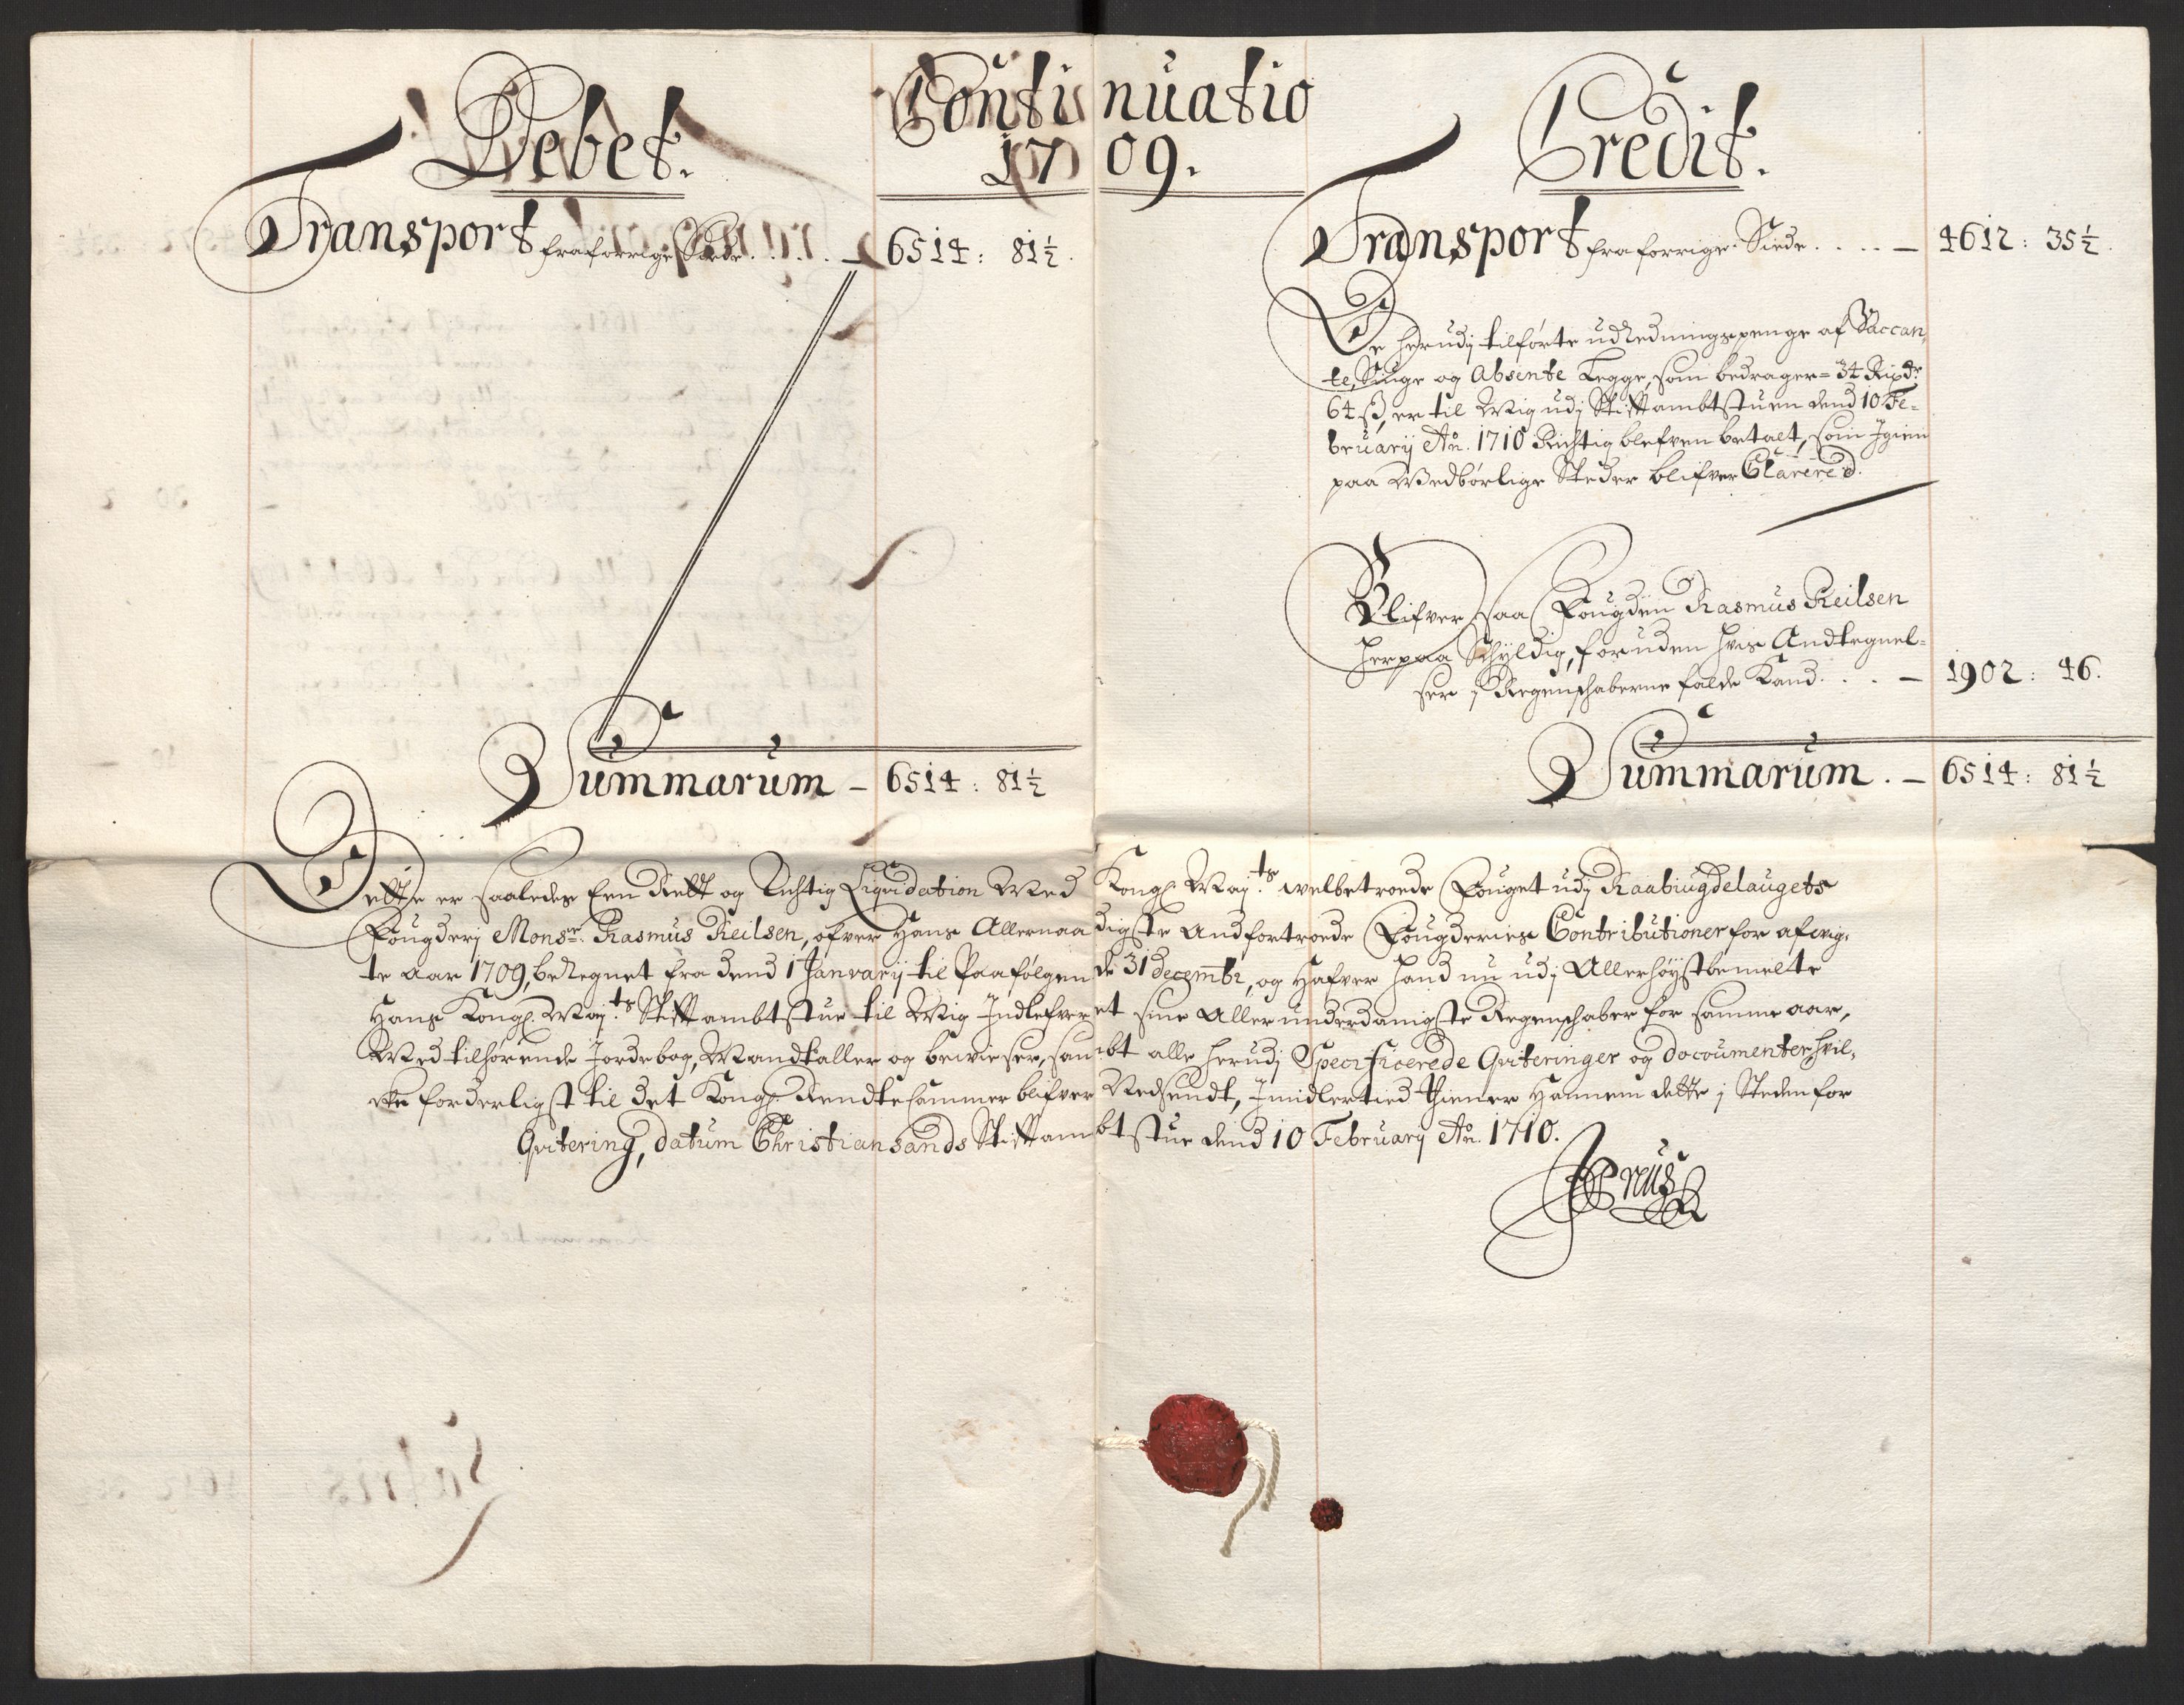 Continuatio
1709.
Debet.
Transport fra forrige Siede. . . . . — 6514: 81½.
Summarum — 6514: 81½
Credit.
Transport fra forrige Siede. . . . — 4612: 35½.
De herudj tilførte udRedningspenge af Vaccan,
te, Siuge og Absente Legge, som bedrager = 34 Rixdr
64 ß, er til Mig udj Stiftambtstuen dend 10 Fe-
bruarij Ao. 1710 Richtig blefven betalt, som Igien
paa Wedbørlige Steder blifver Clarered.
Blifver saa Fougden Rasmus Keilsen
herpaa Schyldig, foruden hvis Andtegnel-
ser j Regenschaberne falde Kand. . . . — 1902: 46.
Summarum. — 6514: 81½
Dette er saaledes Een Rett og Richtig Liqvidation Med Kongl. Maj.ts welbetroede Fouget udj Raabiugdelaugets
Fougderj Monsr. Rasmus Keilsen, ofver Hans Allernaadigste Andfortroede Fougderies Contributioner for afvig,
te Aar 1709, beregnet fra dend 1 Janvarij til Paafølgende 31 decembr, og Hafver hand nu udj Allerhøystbemelte
Hans Kongl. Maj.ts Stiftambtstue til Mig Indlefveret sine Allerunderdanigste Regenschaber for samme aar,
Med tilhørende Jordebog, Mandtaller og bevieser, sambt alle herudj Specificerede Qviteringer og documenter, hvil,
cke forderligst til det Kongl. Rendte Cammer blifver Nedsendt, Imidlertied thiener Hannem dette j Steden for
Qvitering, datum Christiansands Stiftambtstue dend 10 February Ao. 1710.